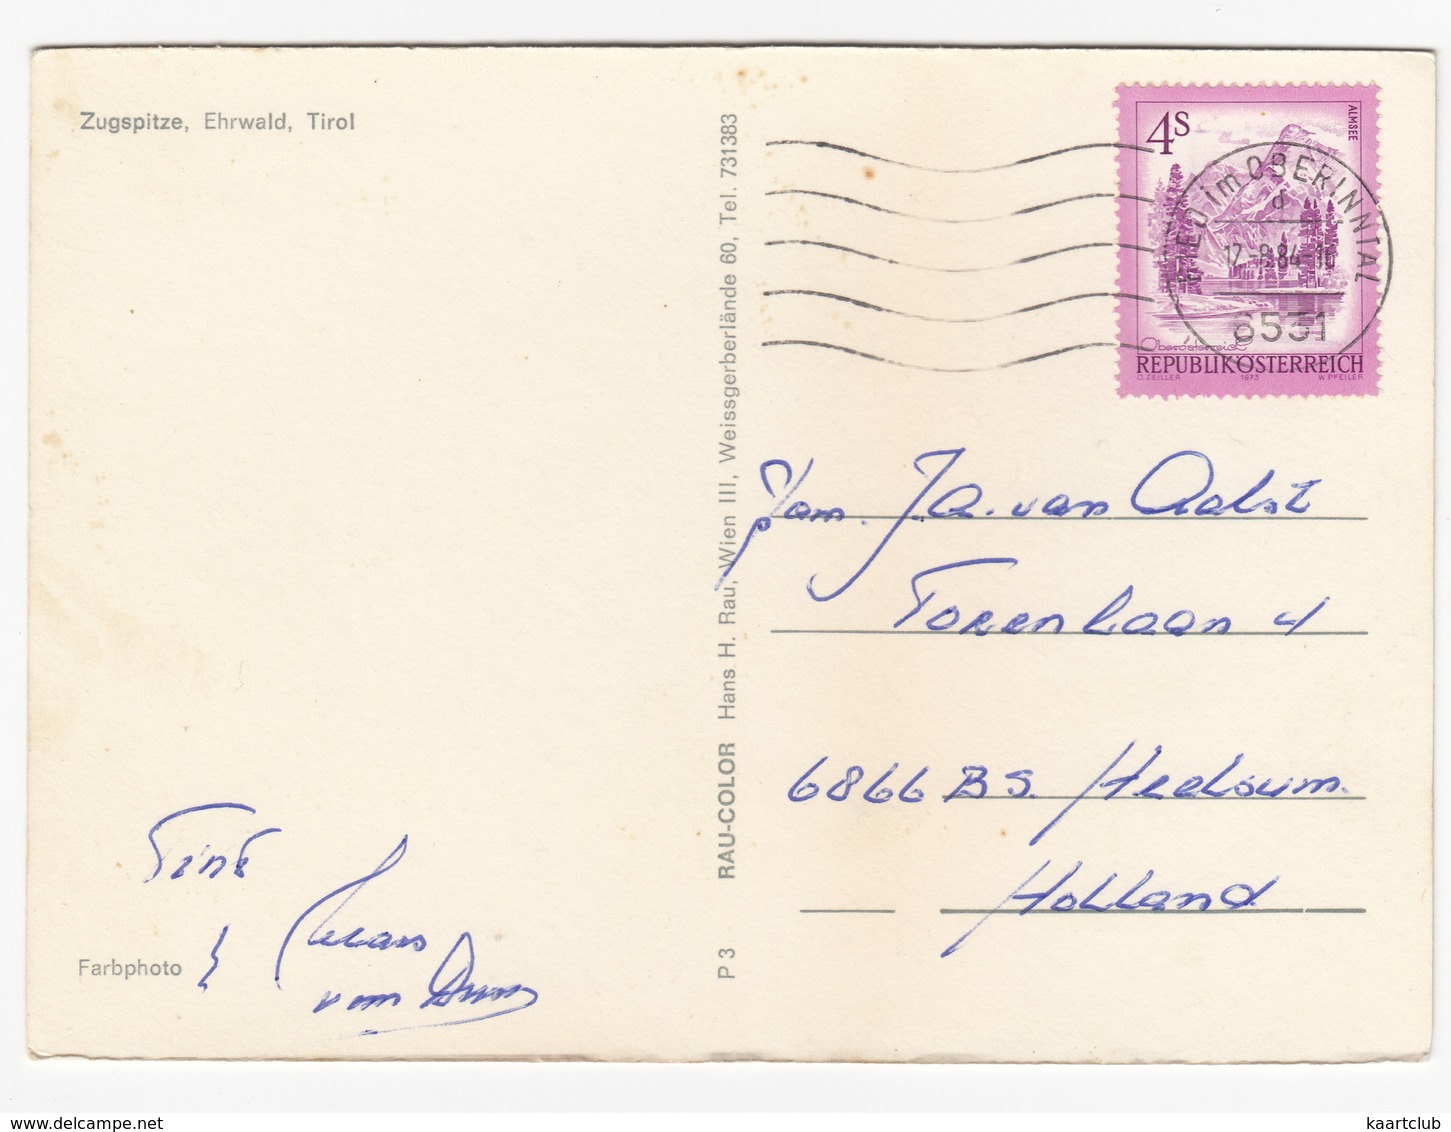 Zugspitze, Ehrwald, Tirol
4S
ALMSEE
RIED im OBERINNTAL
d
12.-8.84-16
6531
Oberösterreich
REPUBLIK ÖSTERREICH
O. ZEILLER 1973 W. PFEILER
P 3 RAU-COLOR Hans H. Rau, Wien III, Weissgerberlände 60, Tel. 731383
Fam. J.A. van Aalst
Torenlaan 4
6866 BS. Heelsum.
Holland
Tini
Farbphoto
kaartclub